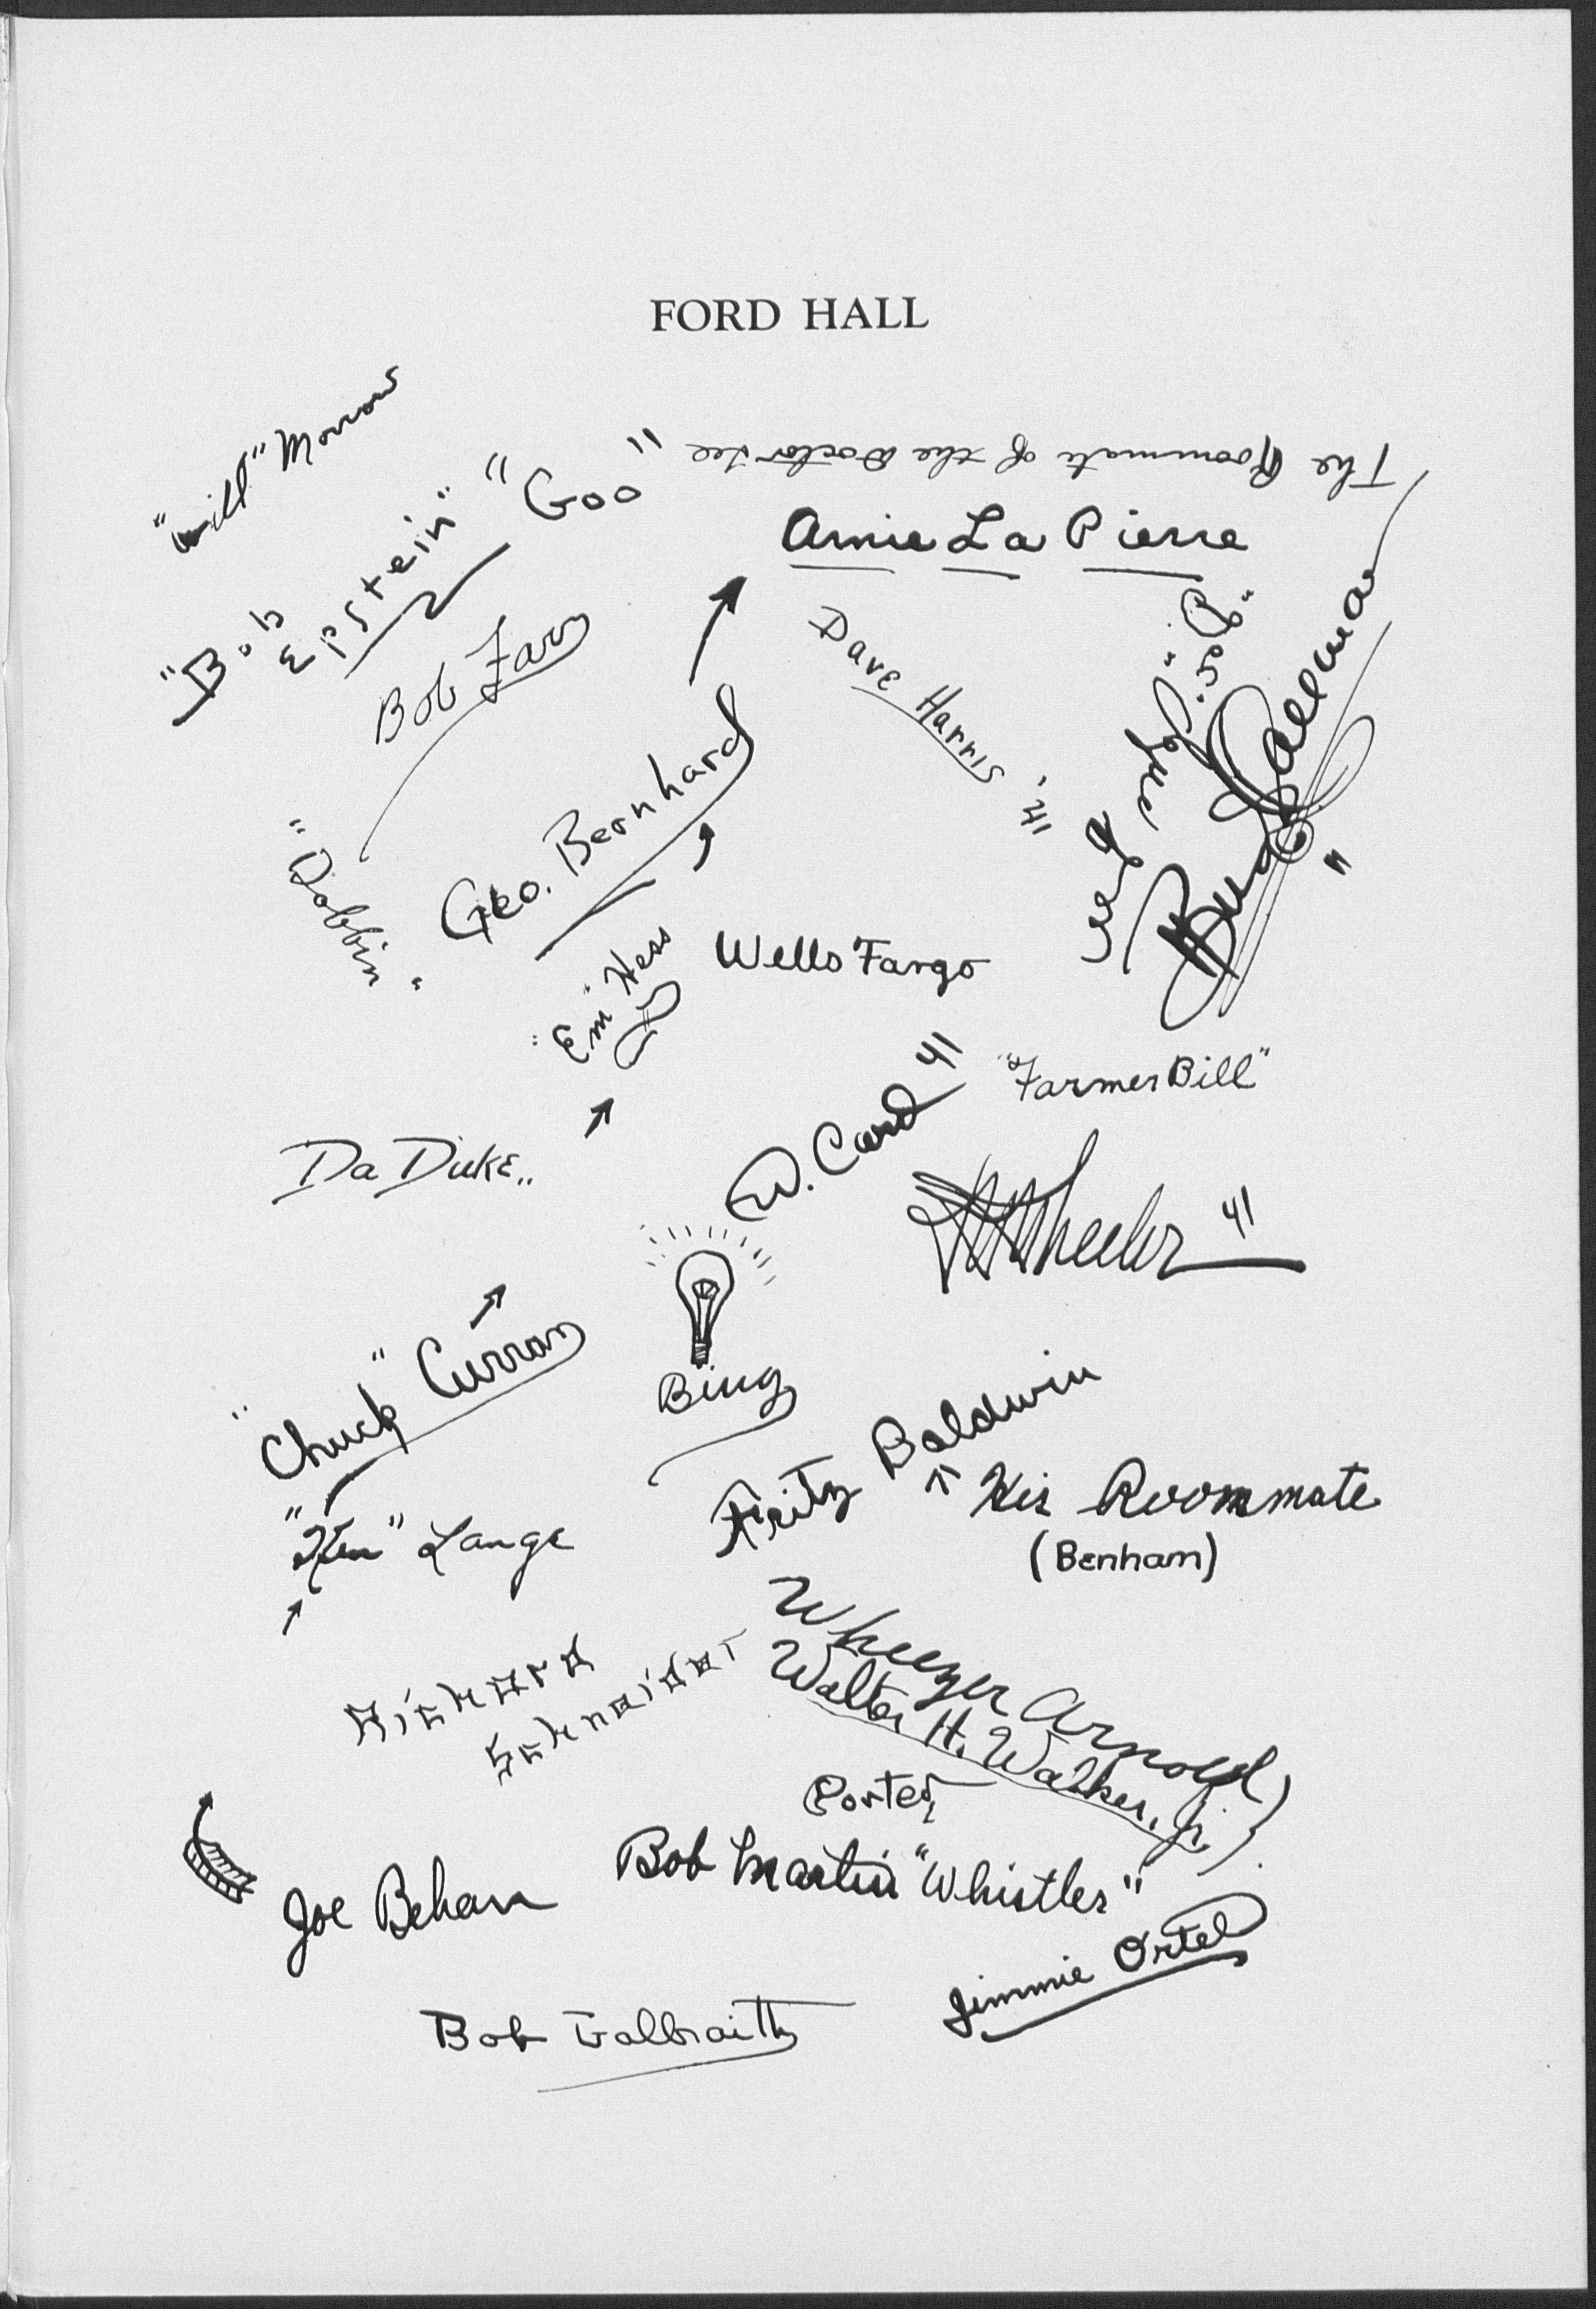 FORD HALL
"Will" Morrow
"Bob
Epstein"
"Goo"
The Roommate of the Doctor Lee
Arnie La Pierre
Bob
Dave Harris '41
"Pres."
Bud
"Dobbin"
Geo. Bernhard
"Em" Hess
Wells Fargo
W. Card 41
"Farmer Bill"
Da Duke..
Wheeler 41
"Chuck" Curran
Bing
Fritz Baldwin
↑ His Roommate
(Benham)
"Ken" Lange
Richard
Schneider
Wheezer Arnold
Walter H. Walker, Jr.
Porter
Joe Behan
Bob Martin "Whistler"
Jimmie Ortel
Bob Galbraith